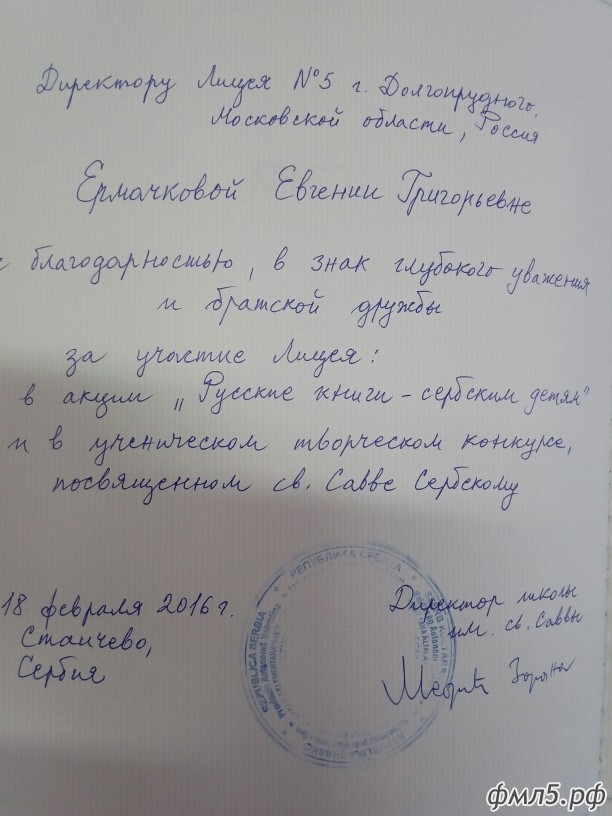 Директору Лицея №5 г. Долгопрудного,
Московской области, Россия
Ермачковой Евгении Григорьевне
с благодарностью, в знак глубокого уважения
и братской дружбы
за участие Лицея:
в акции „Русские книги – сербским детям"
и в ученическом творческом конкурсе,
посвященном св. Савве Сербскому
18 февраля 2016 г.
Стайчево,
Сербия
Директор школы
им. св. Саввы
РЕПУБЛИКА СРБИЈА
REPUBLICA SERBIA
фмл5.рф